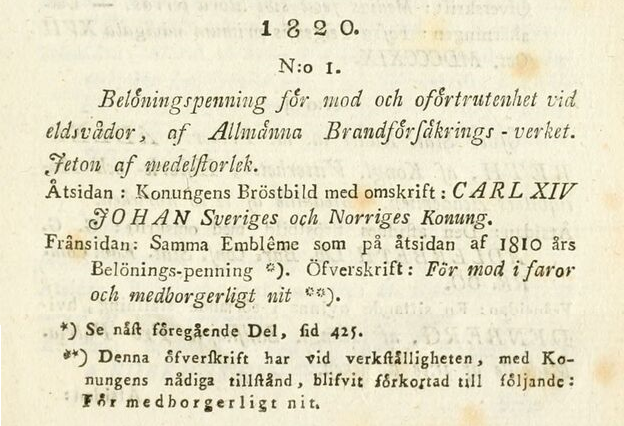 1820.
N:o 1.
Belöningspenning för mod och oförtrutenhet vid
eldsvådor, af Allmänna Brandförsäkrings-verket.
Jeton af medelſtorlek.
Åtsidan: Konungens Bröstbild med omskrift: CARL XIV
JOHAN Sveriges och Norriges Konung.
Frånsidan: Samma Emblême som på åtsidan af 1810 års
Belönings-penning *). Öfverskrift: För mod i faror
och medborgerligt nit **).
*) Se näſt föregående Del, ſid 425.
**) Denna öfverſkrift har vid verkſtälligheten, med Ko-
nungens nådiga tillſtånd, blifvit förkortad till följande:
För medborgerligt nit.